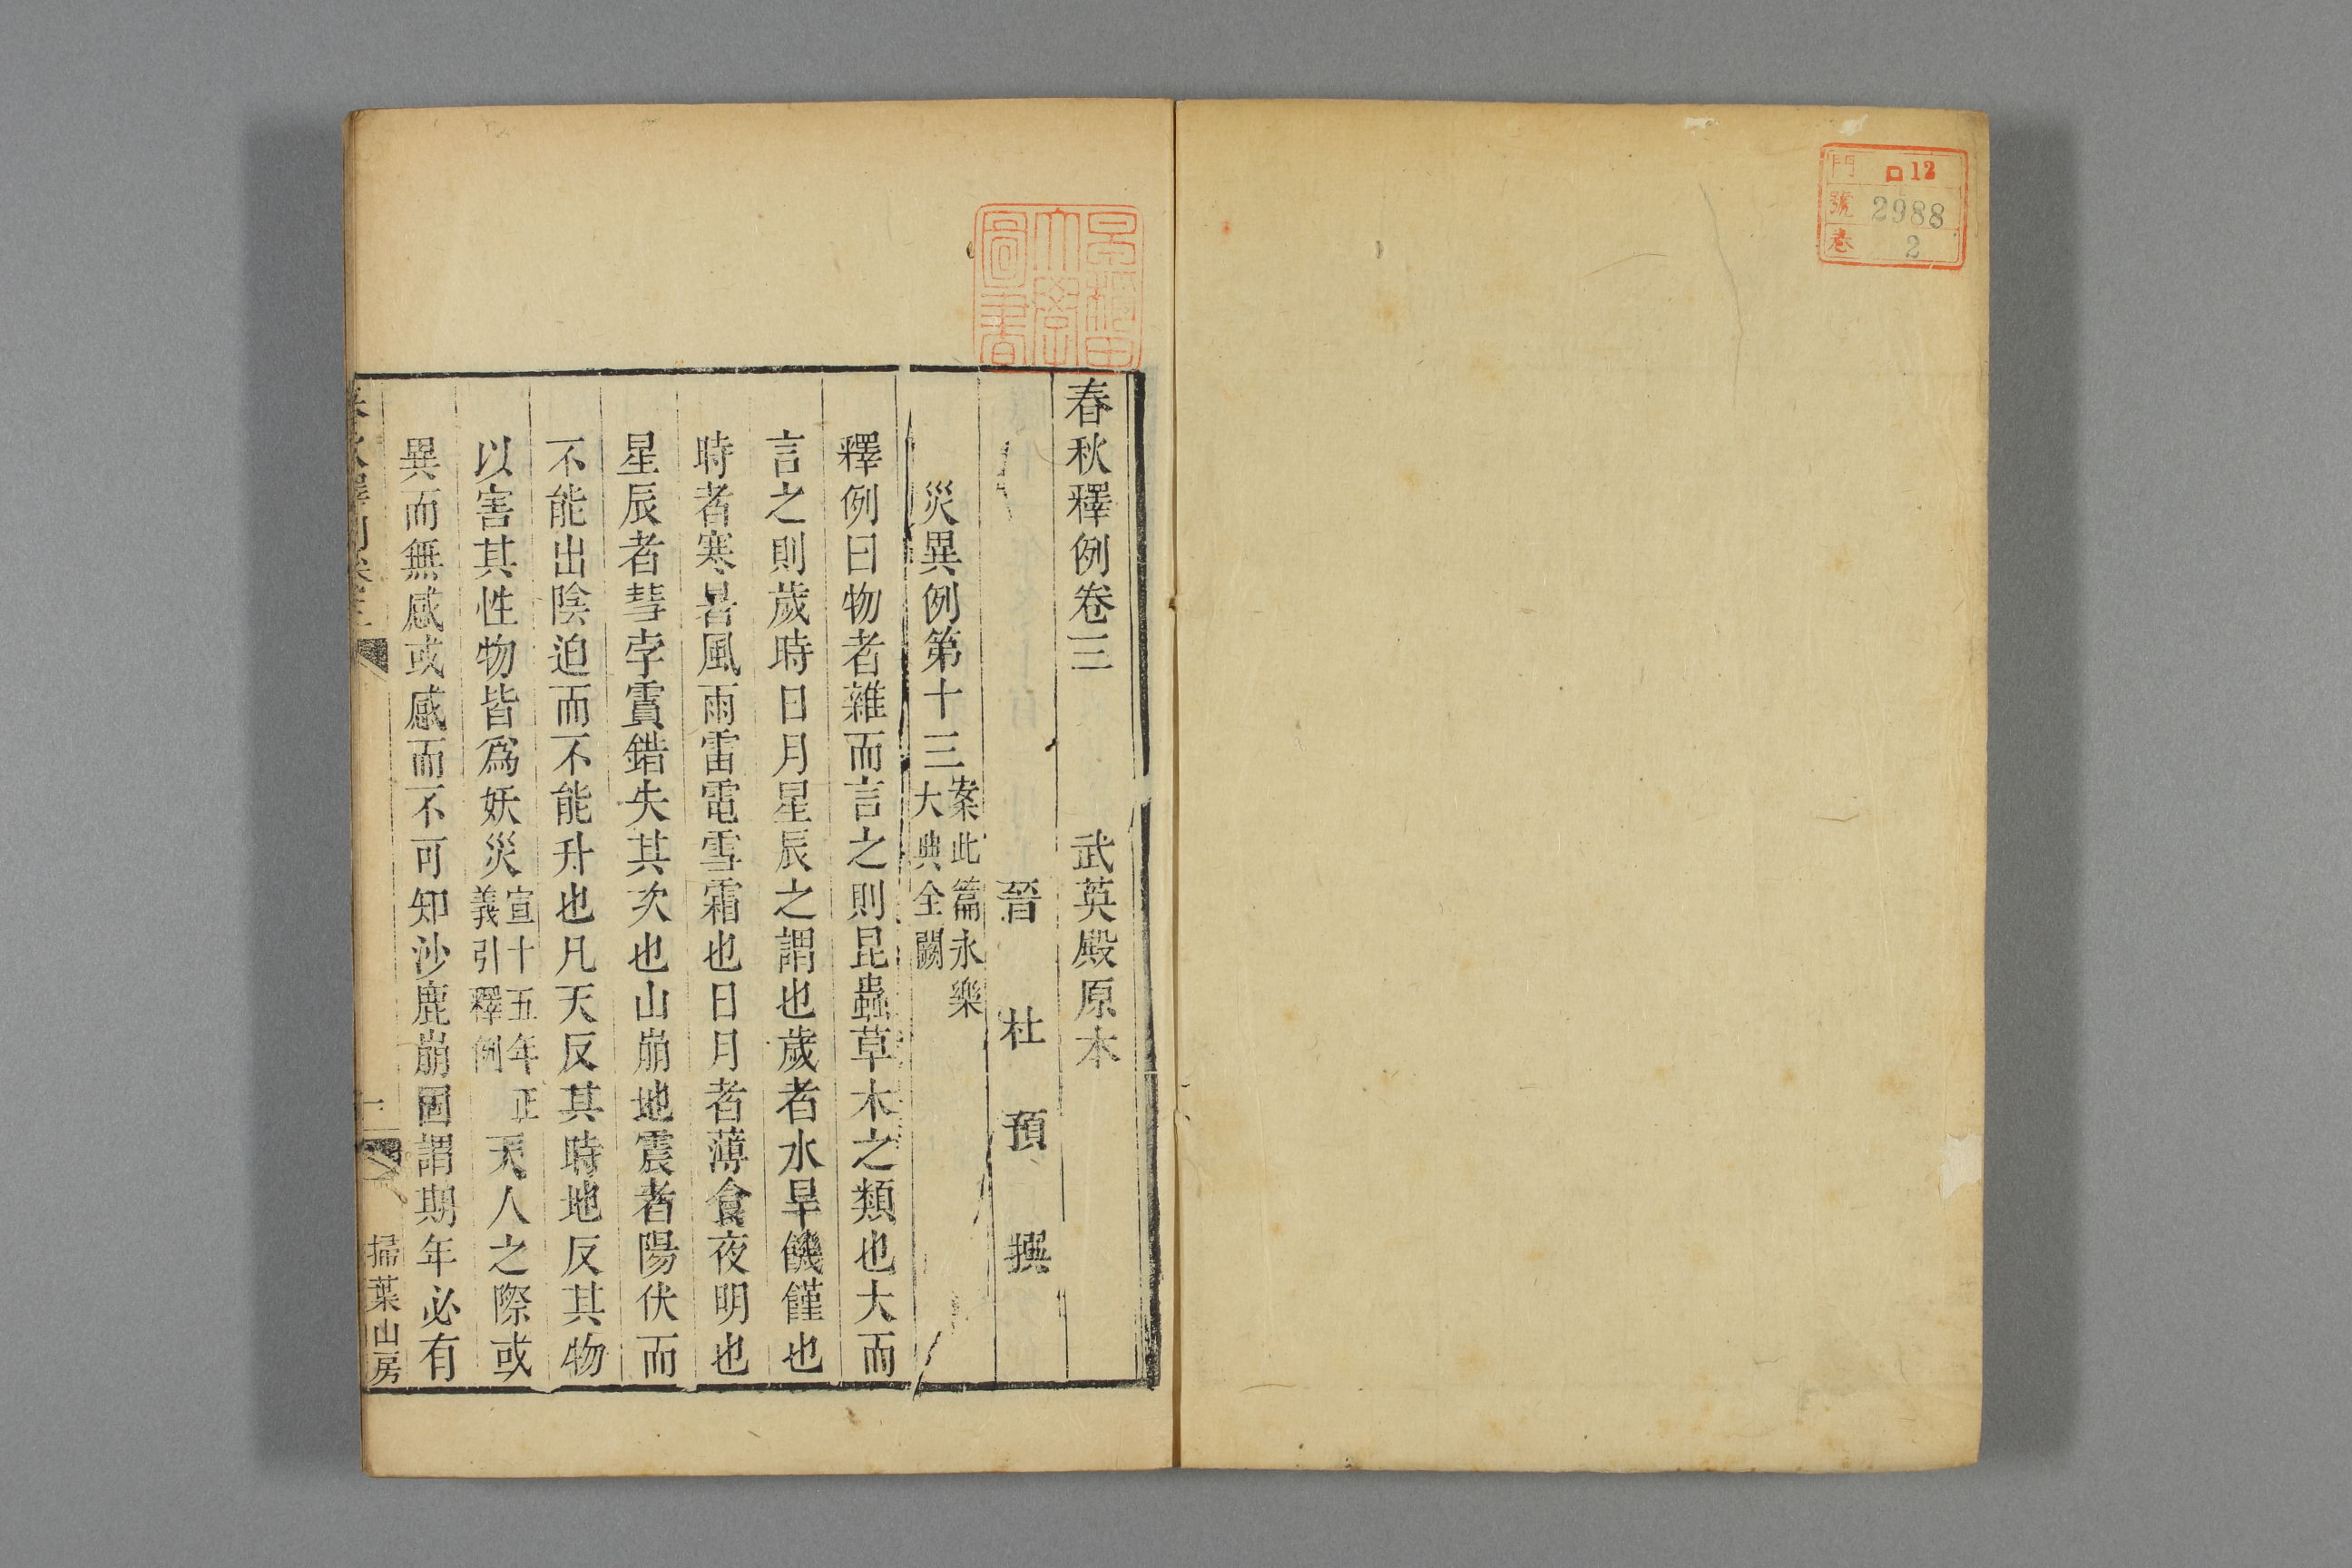 門 ロ12
號 2988
卷 2
早稻田大學圖書
春秋釋例卷三 武英殿原本
晉 杜 預 撰
災異例第十三案此篇永樂大典全闕
釋例曰物者雜而言之則昆蟲草木之類也大而
言之則歲時日月星辰之謂也歲者水旱饑饉也
時者寒暑風雨雷電雪霜也日月者薄食夜明也
星辰者彗孛霣錯失其次也山崩地震者陽伏而
不能出陰迫而不能升也凡天反其時地反其物
以害其性物皆爲妖災宣十五年正義引釋例天人之際或
異而無感或感而不可知沙鹿崩因謂期年必有
春秋釋例卷三 一 掃葉山房